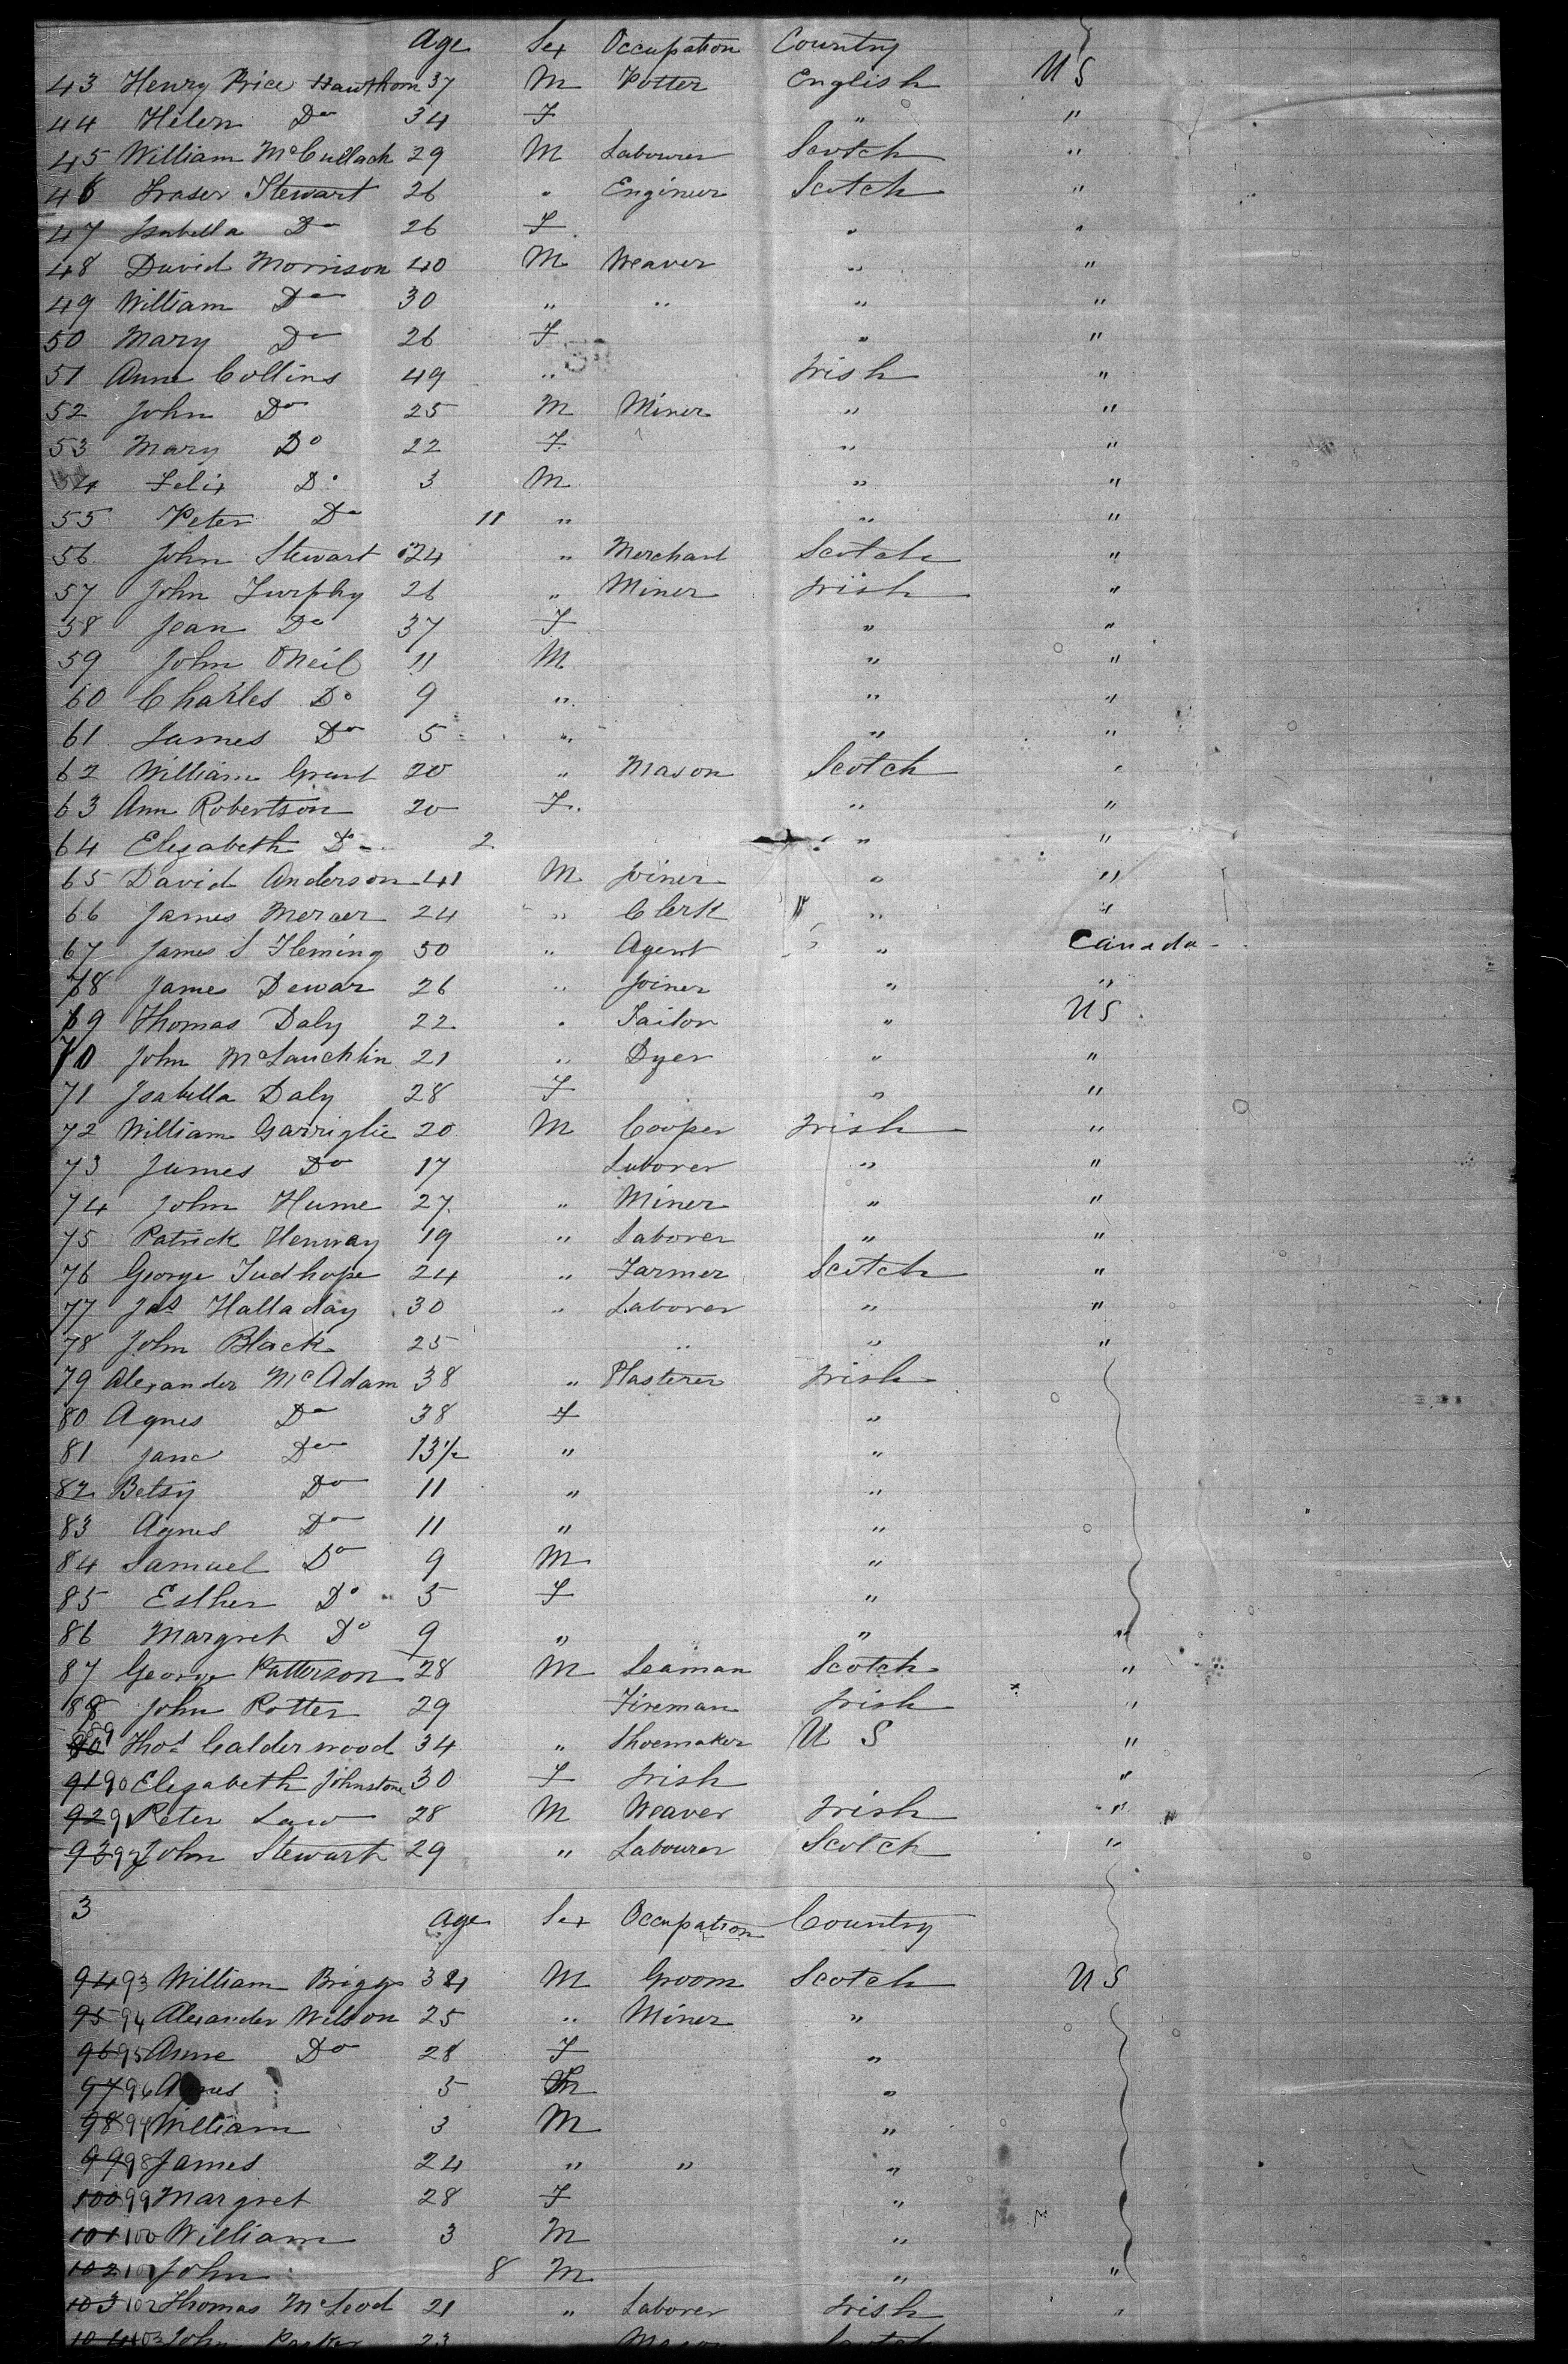 Age Sex Occupation Country
43 Henry Price Hawthorn 37 M Potter English US
44 Helen Do 34 F " "
45 William McCullach 29 M Labourer Scotch "
46 Fraser Stewart 26 " Engineer Scotch "
47 Isabella Do 26 F " "
48 David Morrison 40 M Weaver " "
49 William Do 30 " " " "
50 Mary Do 26 F " "
51 Anne Collins 49 " Irish "
52 John Do 25 M Miner " "
53 Mary Do 22 F " "
54 Felix Do 3 M " "
55 Peter Do 11 " " "
56 John Stewart 24 " Merchant Scotch "
57 John Turphy 26 " Miner Irish "
58 Jean Do 37 F " "
59 John ONeil 11 M " "
60 Charles Do 9 " " "
61 James Do 5 " " "
62 William Grant 20 " Mason Scotch "
63 Ann Robertson 20 F " "
64 Elizabeth Do 2 " "
65 David Anderson 41 M Joiner " "
66 James Mercer 24 " Clerk " "
67 James S Fleming 50 " Agent " Canada
68 James Dewar 26 " Joiner " "
69 Thomas Daly 22 " Tailor " US
70 John McLauchlin 21 " Dyer " "
71 Isabella Daly 28 F " "
72 William Garriglie 20 M Cooper Irish "
73 James Do 17 Laborer " "
74 John Hume 27 " Miner " "
75 Patrick Henway 19 " Laborer " "
76 George Tudhope 24 " Farmer Scotch "
77 Jas Halladay 30 " Laborer " "
78 John Black 25 " " "
79 Alexander McAdam 38 " Plasterer Irish
80 Agnes Do 38 F "
81 Jane Do 13½ " "
82 Betsy Do 11 " "
83 Agnes Do 11 " "
84 Samuel Do 9 M "
85 Esther Do 5 F "
86 Margret Do 9 " " "
87 George Patterson 28 M Seaman Scotch "
88 John Potter 29 Fireman Irish "
89 Thos Calderwood 34 " Shoemaker U S "
91 90 Elizabeth Johnstone 30 F Irish "
92 91 Peter Law 28 M Weaver Irish "
93 92 John Stewart 29 " Labourer Scotch "
3
Age Sex Occupation Country
94 93 William Briggs 34 M Groom Scotch US
95 94 Alexander Wilson 25 " Miner "
96 95 Anne Do 28 F "
97 96 Agnes 5 "
98 97 William 3 M "
99 98 James 24 " " "
100 99 Margret 28 F "
101 100 William 3 M "
102 101 John 8 M " "
103 102 Thomas McLeod 21 " Laborer Irish "
104 103 John 23 Mason Scotch